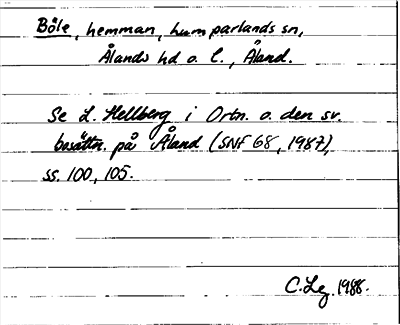 Böle, hemman, hum parlands sn,
Ålands hd o. l., Åland.
Se L. Hellberg i Ortn. o. den sv.
bosättn. på Åland (SNF 68, 1987),
ss. 100, 105.
C. Lg. 1988.